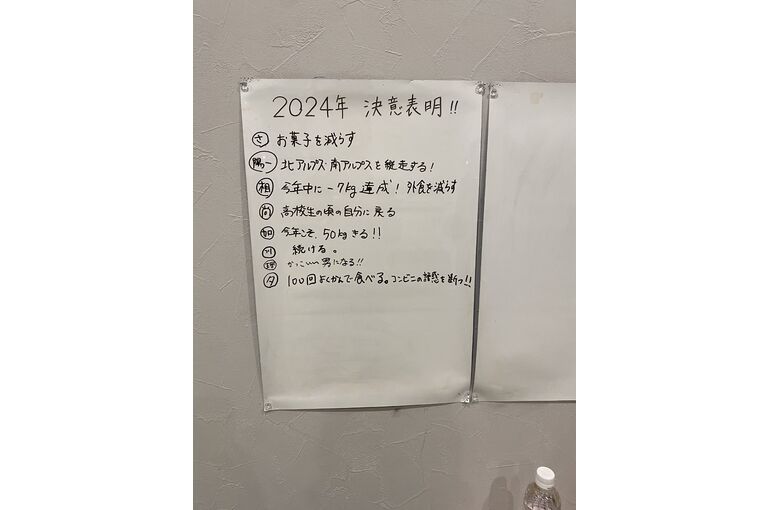 2024年 決意表明!!
さ お菓子を減らす
陽一 北アルプス・南アルプスを縦走する!
相 今年中に -7kg 達成! 外食を減らす
尚 高校生の頃の自分に戻る
如 今年こそ、50kgきる!!
川 続ける。
かっこいい男になる!!
夕 100回よくかんで食べる。コンビニの誘惑を断つ!!